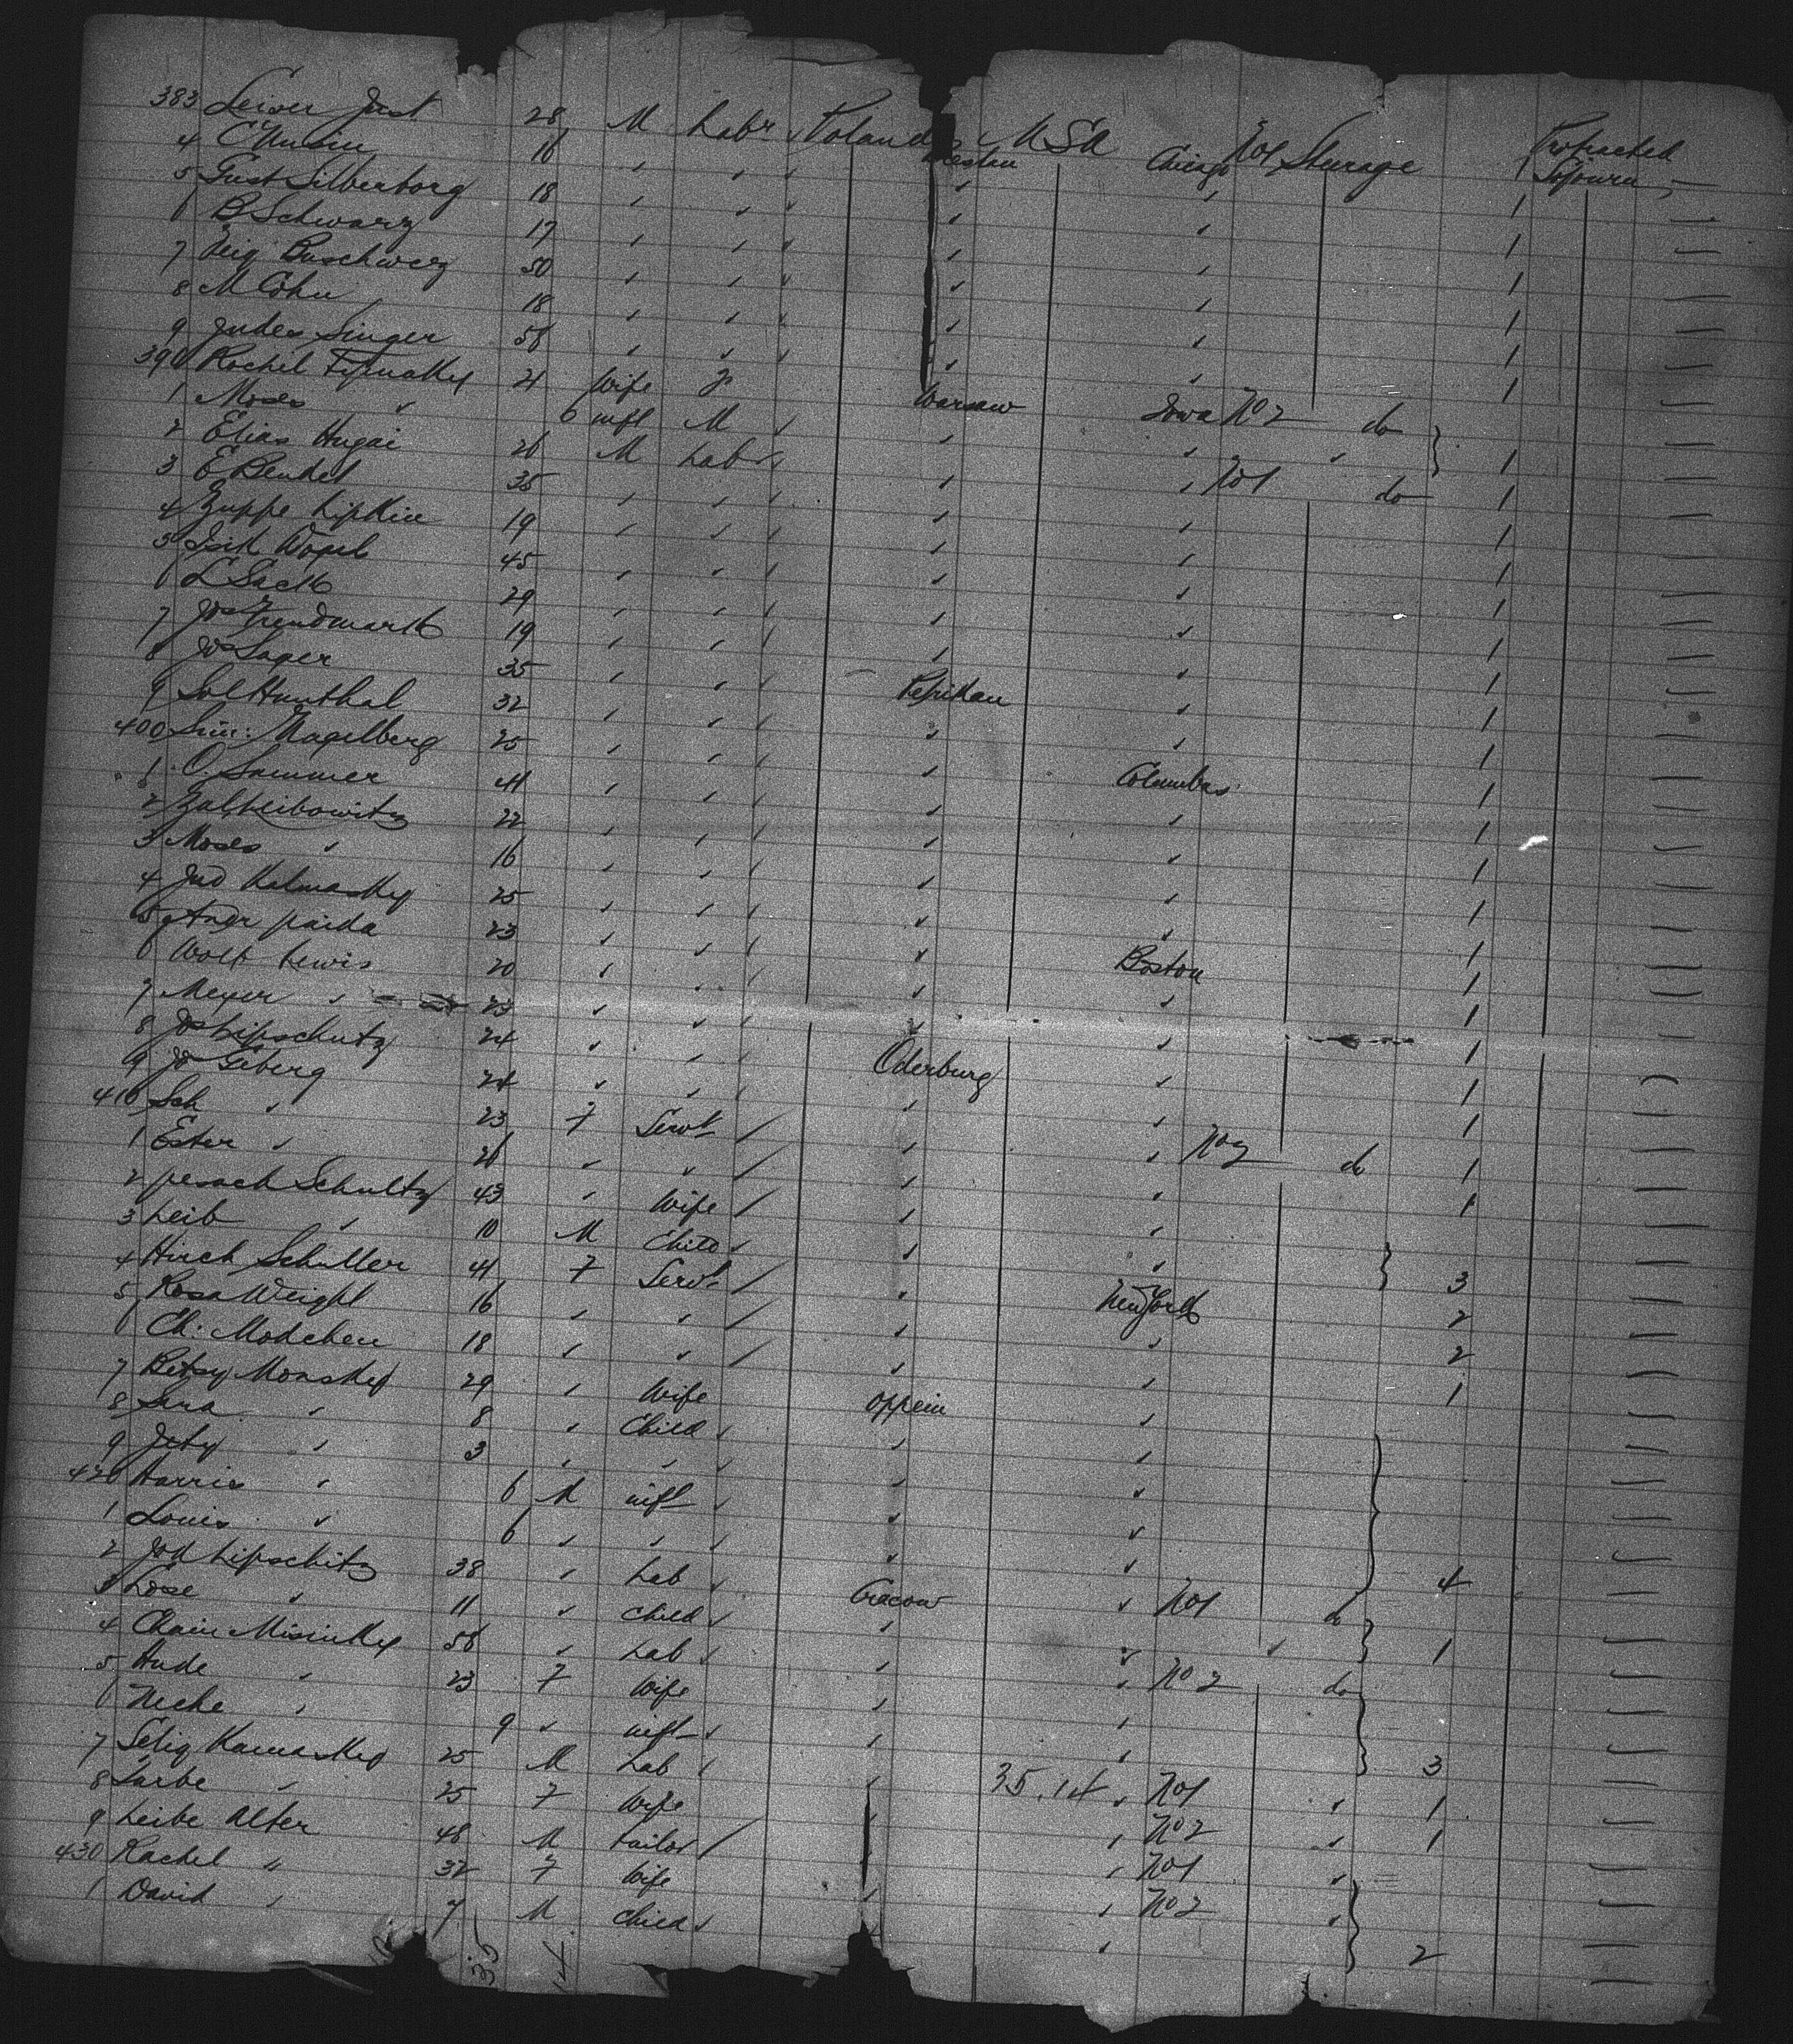 383 Leiser Just 28 M Labr ✓ Poland Bresten USA Chicago No1 Steurage 1 Protracted Sojourn —
4 C Nusin 16 " " " " " 1 —
5 Gust Silberborg 18 " " " " " 1 —
6 B Schwarz 17 " " " " " 1 —
7 Buschwerz 50 " " " " " 1 —
8 M Cohn 18 " " " " " 1 —
9 Judes Singer 58 " " " " " 1 —
390 Rachel 21 Wife F Warsaw Iowa No 2 do }
1 Moses " 6 inft M " " " " } 1 —
2 Elias Hugai 26 M Labr " " " No1 do 1 —
3 E Bendel 35 " " " " " 1 —
4 Zuppe Lipkin 19 " " " " " 1 —
5 Isik Wopel 45 " " " " " 1 —
6 L Sack 29 " " " " " 1 —
7 Jos Frendmark 19 " " " " " 1 —
8 Jos Sager 35 " " " Petrikau " 1 —
9 Sol Hunthal 32 " " " " " 1 —
400 Sim: Nagelberg 25 " " " " Columbus 1 —
1 O. Sammer 41 " " " " " 1 —
2 Zal Leibowitz 22 " " " " " 1 —
3 Moses " 16 " " " " " 1 —
4 Jud Kalmasky 25 " " " " " 1 —
5 paida 23 " " " " Boston 1 —
6 Wolf Lewis 20 " " " " " 1 —
7 Meyer " 23 " " " " " 1 —
8 Jos Lipschutz 24 " " " Oderburg " 1 —
9 Jo Geberg 24 " " " " " 1 —
410 Sch " 23 F Servt / " " No 2 do 1 —
1 Ester " 21 " " / " " 1 —
2 pesach Schultz 43 " Wife / " " }
3 Leib " 10 M Child " " " } 3 —
4 Hirch Schuller 41 F Servt / " New York 2 —
5 Rosa Weight 16 " " / " " 2 —
6 Ch: Modchen 18 " " / " " 1 —
7 Betsy Monsky 29 " Wife Oppein " }
8 Sara " 8 " Child " " " —
9 Jety " 3 " " " " " —
420 Harris " 6 M inft " " " —
1 Louis " 6 " " " " " } 4 —
2 Jos Lipschitz 38 " Lab " Cracow " No1 do }
3 Lose " 11 " Child " " " " } 1 —
4 Chain Misinsky 58 " Lab " " " No 2 do }
5 Hude " 23 F Wife " " —
6 Neche " 9 " inft " " " } 3 —
7 Selig Kamasky 25 M Lab " " 35.14 " No1 " 1 —
8 Sarbe " 25 F Wife " No 2 " 1 —
9 Leibe Alter 48 M Tailor / " No1 " }
430 Rachel " 32 F Wife " " No 2 " —
1 David " 7 M Child " " } 2 —
35 14